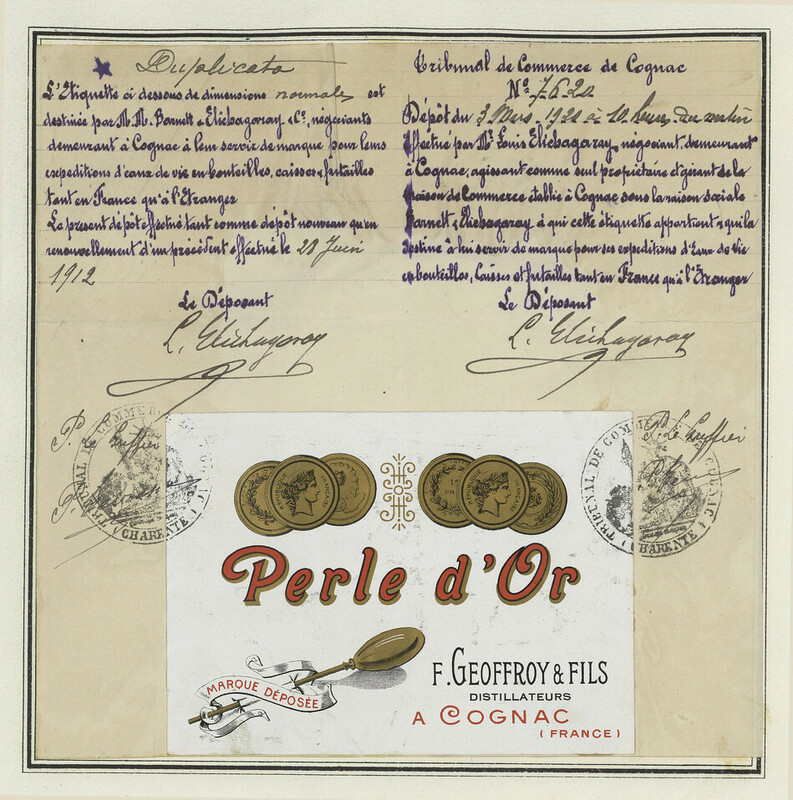 Duplicata
L'Etiquette ci dessous de dimensions normales est
destinée par M.M. Barnett & Elichagaray & Cº, négociants
demeurant à Cognac à leur servir de marque pour leurs
expeditions d'eaux de vie en bouteilles, caisses & futailles
tant en France qu'à l'Etranger
Le present dépôt effectué tant comme dépôt nouveau qu'en
renouvellement d'un précédent effectué le 28 Juin
1912
Le Déposant
L. Elichagaray
Tribunal de Commerce de Cognac
Nº 7620
Dépôt du 3 Mars 1921 à 10 heures du matin
effectué par Mr Louis Elichagaray, négociant, demeurant
à Cognac, agissant comme seul propriétaire et gérant de la
maison de Commerce établie à Cognac sous la raison sociale
Barnett & Elichagaray à qui cette étiquette appartient & qui la
destine à lui servir de marque pour ses expeditions d'Eaux de Vie
en bouteilles, Caisses et futailles tant en France qu'à l'Etranger
Le Déposant
L. Elichagaray
P. Le Greffier
TRIBUNAL DE COMMERCE DE COGNAC
(CHARENTE)
P. Le Greffier
TRIBUNAL DE COMMERCE DE COGNAC
(CHARENTE)
Perle d'Or
MARQUE DÉPOSÉE
F. GEOFFROY & FILS
DISTILLATEURS
A COGNAC
(FRANCE)